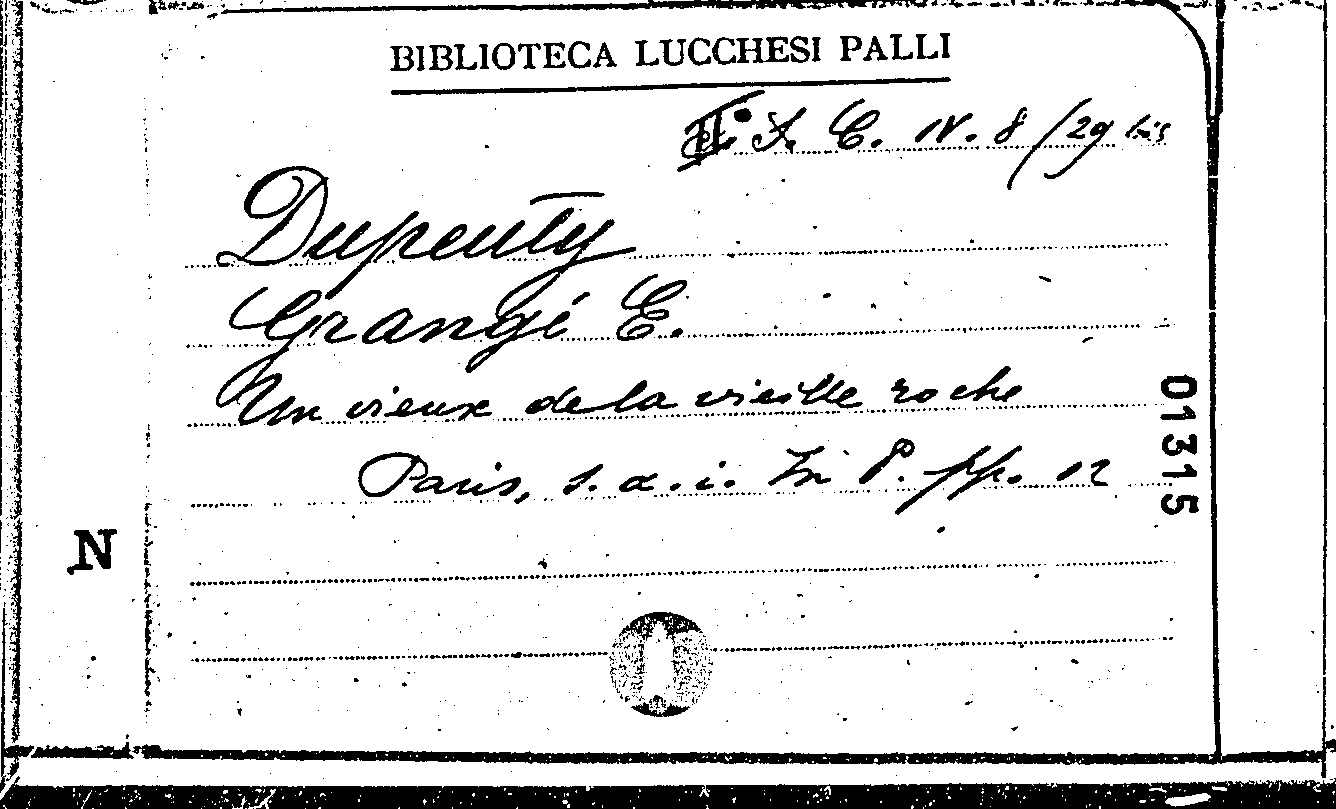 BIBLIOTECA LUCCHESI PALLI
L. C. IV. 8 /29 bis
Dupeuty
Grangé E.
Un vieux de la vieille roche
Paris, s. a. i. In 8°. pp. 12
01315
N